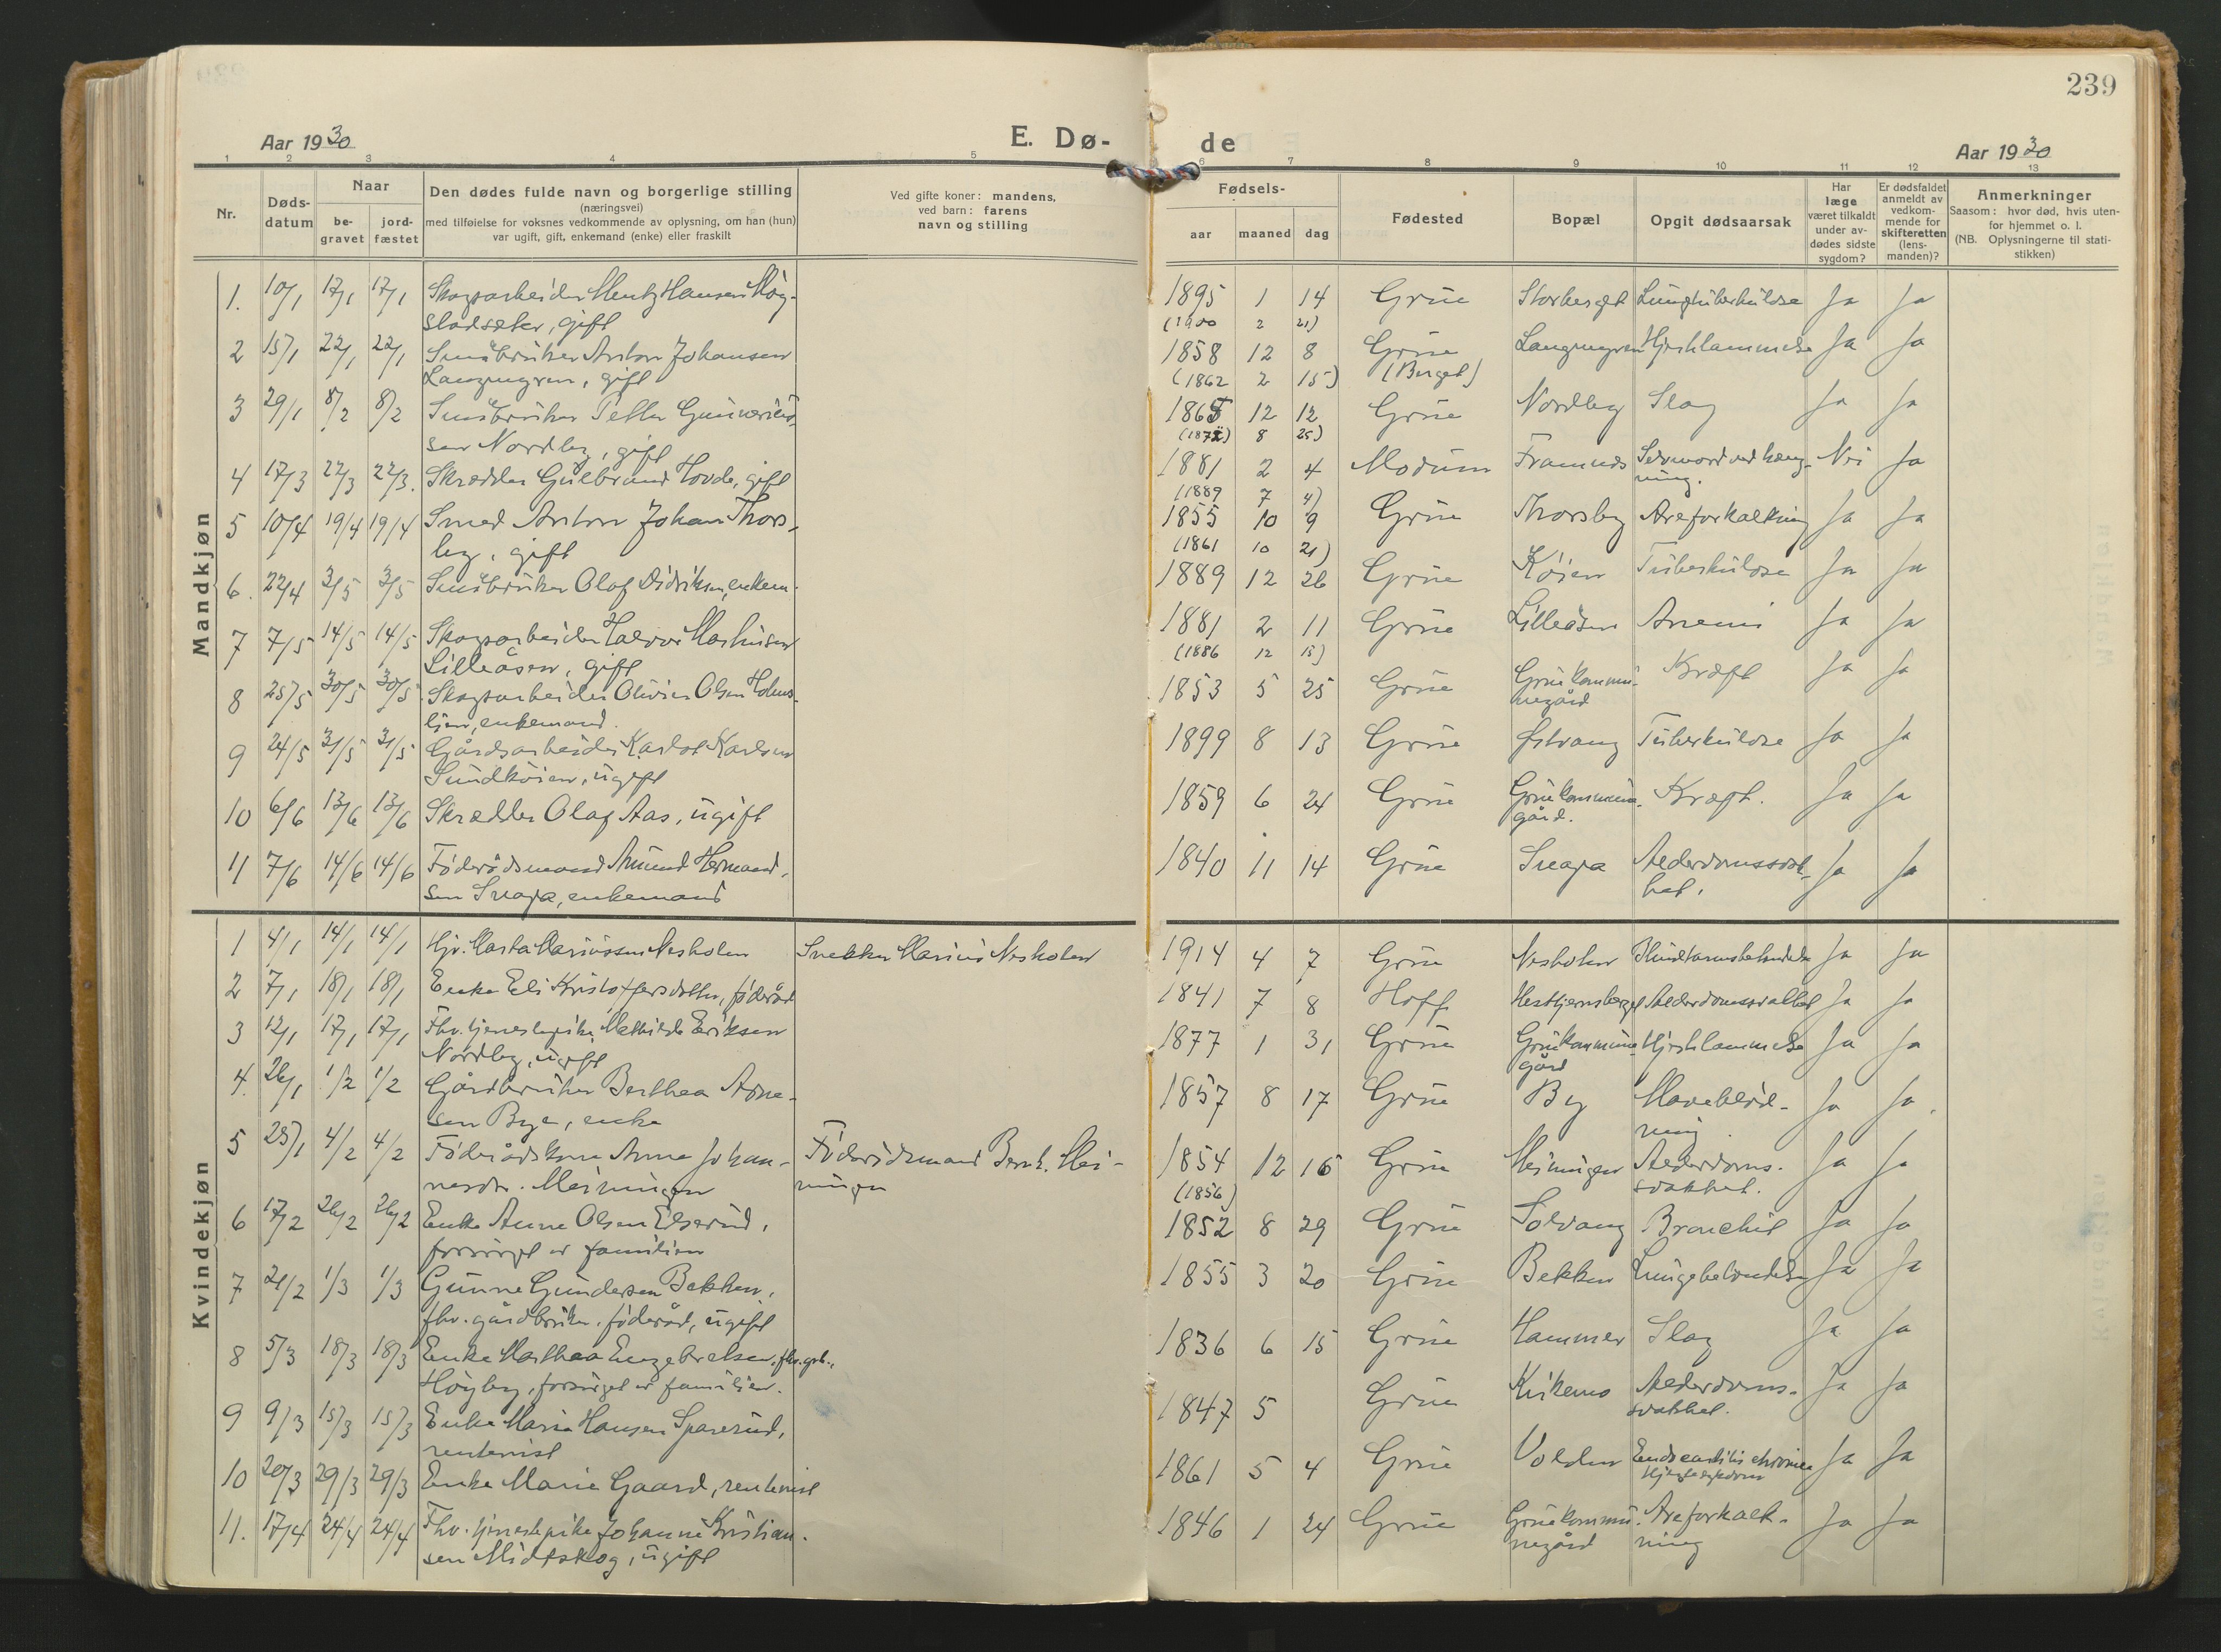 239
Aar 1930
E. Dø-
de
Aar 1930
1 2 3 4 5 6 7 8 9 10 11 12 13
Nr.
Døds-
datum
Naar
be-
gravet
jord-
fæstet
Den dødes fulde navn og borgerlige stilling
(næringsvei)
med tilføielse for voksnes vedkommende av oplysning, om han (hun)
var ugift, gift, enkemand (enke) eller fraskilt
Ved gifte koner: mandens,
ved barn: farens
navn og stilling
Fødsels-
aar maaned dag
Fødested
Bopæl
Opgit dødsaarsak
Har
læge
været tilkaldt
under av-
dødes sidste
sygdom?
Er dødsfaldet
anmeldt av
vedkom-
mende for
skifteretten
(lens-
manden)?
Anmerkninger
Saasom: hvor død, hvis uten-
for hjemmet o. l.
(NB. Oplysningerne til stati-
stikken)
Mandkjøn
1. 10/1 17/1 17/1 Skogsarbeider Mentz Hansen Møg- 1895 1 14 Grue Storberget Lungetuberkulose Ja Ja
stadsæter, gift (1900 2 21)
2 15/1 22/1 22/1 Småbruker Anton Johansen 1858 12 8 Grue Langmyren Hjertelammelse Ja Ja
Langmyren, gift (1862 2 15) (Berget)
3 29/1 8/2 8/2 Småbruker Petter Gunerius- 1865 12 12 Grue Nordby Slag Ja Ja
sen Nordby, gift (1872) 8 25)
4 17/3 22/3 22/3. Skrædder Gulbrand Hovde, gift 1881 2 4 Modum Framnes Selvmord ved hæng- Nei Ja
(1889 7 4) ning.
5 10/4 19/4 19/4 Smed Anton Johan Thors- 1855 10 9 Grue Thorsby Areforkalkning Ja Ja
by, gift (1861 10 21)
6. 22/4 3/5 3/5 Småbruker Olaf Didriksen, enkem. 1889 12 26 Grue Køien Tuberkulose Ja Ja
7 7/5 14/5 14/5 Skogsarbeider Halvor Mathisen 1881 2 11 Grue Lilleåsen Anemi Ja Ja
Lilleåsen, gift (1886 12 15)
8 25/5 30/5 30/5 Skogsarbeider Olivier Olsen Holms- 1853 5 25 Grue Grue kommu- Kræft Ja Ja
lien, enkemand. negård
9 24/5 31/5 31/5 Gårdsarbeider Karlot Karlsen 1899 8 13 Grue Østvang Tuberkulose Ja Ja
Sundkøien, ugift
10 6/6 13/6 13/6 Skrædder Olaf Aas, ugift 1859 6 24 Grue Grue kommune- Kræft. Ja Ja
gård.
11 7/6 14/6 14/6 Føderådsmand Amund Hermand- 1840 11 14 Grue Svaga Alderdomssvak- Ja Ja
sen Svaga, enkemand het.
Kvindekjøn
1 4/1 14/1 14/1 Hjv. Marta Mariussen Nesholen Snekker Marius Nesholen 1914 4 7 Grue Nesholen Ja Ja
2 7/1 18/1 18/1 Enke Eli Kristoffersdatter, føderåd 1841 7 8 Hoff Hesttjernsberget Alderdomssvakhet Ja Ja
3 12/1 17/1 17/1 Fhv. tjenestepike Mathilde Eriksen 1877 1 31 Grue Grue kommune- Hjertelammelse Ja Ja
Nordby, ugift gård
4. 26/1 1/2 1/2 Gårdbruker Berthea Arne- 1857 8 17 Grue By Maveblød- Ja Ja.
sen Bye, enke ning.
5 25/1 4/2 4/2 Føderådskone Anne Johan- Føderådsmand Bernh. Mei- 1854 12 16 Grue Meiningen Alderdoms- Ja Ja
nesdr. Meiningen ningen (1856) svakhet.
6 17/2 26/2 26/2 Enke Anne Olsen Elserud, 1852 8 29 Grue Solvang Bronchit Ja Ja
forsørget av familien
7 21/2 1/3 1/3 Gunne Gundersen Bekken, 1855 3 20 Grue Bekken Lungebetændelse Ja Ja
fhv. gårdbruker, føderåd, ugift
8 5/3 18/3 18/3 Enke Marthea Engebretsen, fhv. grb., 1836 6 15 Grue Hammer Slag Ja Ja
Høyby, forsørget av familien.
9 9/3 15/3 15/3 Enke Maria Hansen Sparerud, 1847 5 Grue Kirkemo Alderdoms- Ja Ja
rentenist svakhet.
10 20/3 29/3 29/3 Enke Marie Gaard, rentenist 1861 5 4 Grue Volden Endocarditis chronica Ja Ja
Hjertesygdom
11. 17/4 24/4 24/4 Fhv. tjenestepike Johanne Kristian- 1846 1 24 Grue Grue kommu- Areforkalk- Ja Ja
sen Midtskog, ugift negård ning